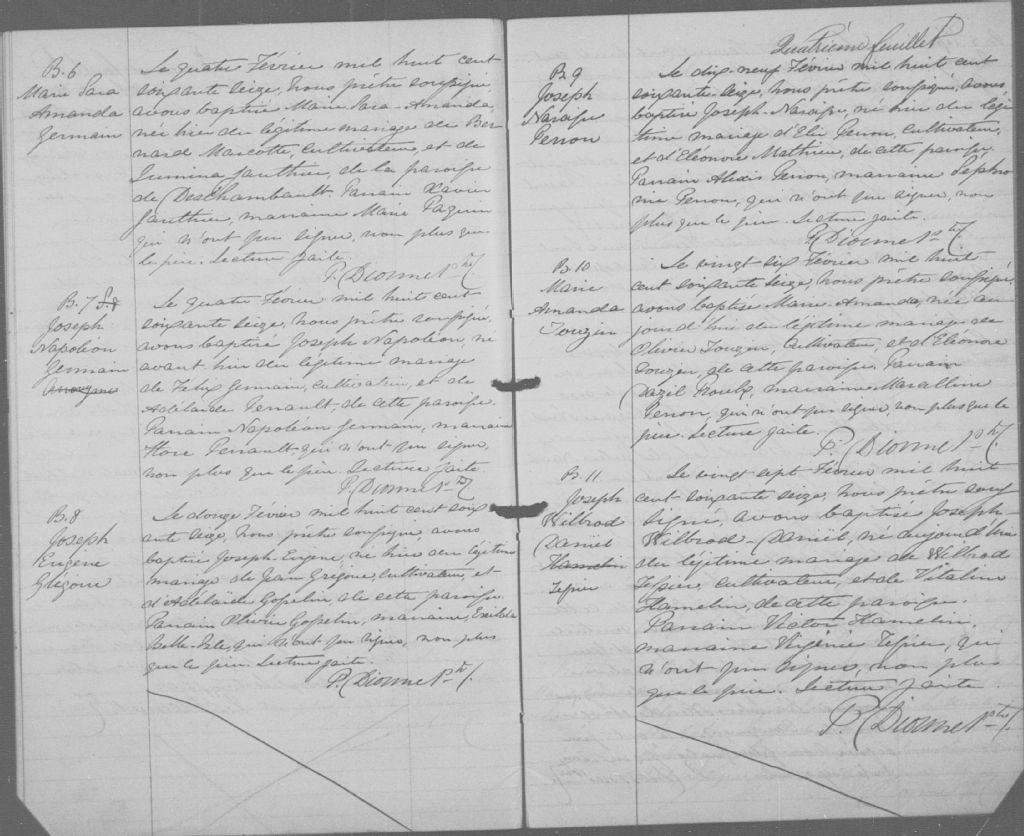 B.6
Marie Sara
Amanda
Germain
Le quatre Février mil huit cent
soixante seize, nous prêtre soussigné,
avons baptisé Marie Sara-Amanda,
née hier du légitime mariage de Ber
nard Marcotte, cultivateur, et de
Gauthier, de la paroisse
de Deschambault. Parrain Xavier
Gauthier, marraine Marie Paquin
qui n'ont pu signer, non plus que
le père. Lecture faite.
P. Dionne Ptre
B.7
Joseph
Napoléon
Germain
Le quatre Février mil huit cent
soixante seize, nous prêtre soussigné,
avons baptisé Joseph Napoléon, né
avant hier du légitime mariage
de Félix Germain, cultivateur, et de
Adélaïde Perrault, de cette paroisse.
Parrain Napoléon Germain, marraine
Flore Perrault qui n'ont pu signer,
non plus que le père. Lecture faite.
P. Dionne Ptre
B.8
Joseph
Eugène
Grégoire
Le douze Février mil huit cent soix
ante seize, nous prêtre soussigné, avons
baptisé Joseph Eugène, né hier du légitime
mariage de Jean Grégoire, cultivateur, et
d'Adélaïde Gosselin, de cette paroisse.
Parrain Olivier Gosselin, marraine
Belle-Isle, qui n'ont pu signer, non plus
que le père. Lecture faite.
P. Dionne Ptre
Quatrième feuillet
B.9
Joseph
Narcisse
Perron
Le dix-neuf Février mil huit cent
soixante seize, nous prêtre soussigné, avons
baptisé Joseph-Narcisse, né hier du légi
time mariage d'Elie Perron, cultivateur,
et d'Eléonore Mathieu, de cette paroisse.
Parrain Alexis Perron, marraine Sophro
nie Perron, qui n'ont pu signer, non
plus que le père. Lecture faite.
P. Dionne Ptre
B.10
Marie
Amanda
Touzin
Le vingt-six Février mil huit
cent soixante seize, nous prêtre soussigné,
avons baptisé Marie-Amanda, née au
jourd'hui du légitime mariage de
Olivier Touzin, cultivateur, et d'Eléonore
Touzin, de cette paroisse. Parrain
marraine
Perron, qui n'ont pu signer, non plus que le
père. Lecture faite.
P. Dionne Ptre
B.11
Joseph
Wilbrod
Daniël
Hamelin
Tessier
Le vingt sept Février mil huit
cent soixante seize, nous prêtre sous
signé, avons baptisé Joseph-
Wilbrod-Daniël, né aujourd'hui
du légitime mariage de Wilbrod
Tessier, cultivateur, et de Vitaline
Hamelin, de cette paroisse.
Parrain Victor Hamelin,
marraine Virginie Tessier, qui
n'ont pu signer, non plus
que le père. Lecture faite.
P. Dionne Ptre